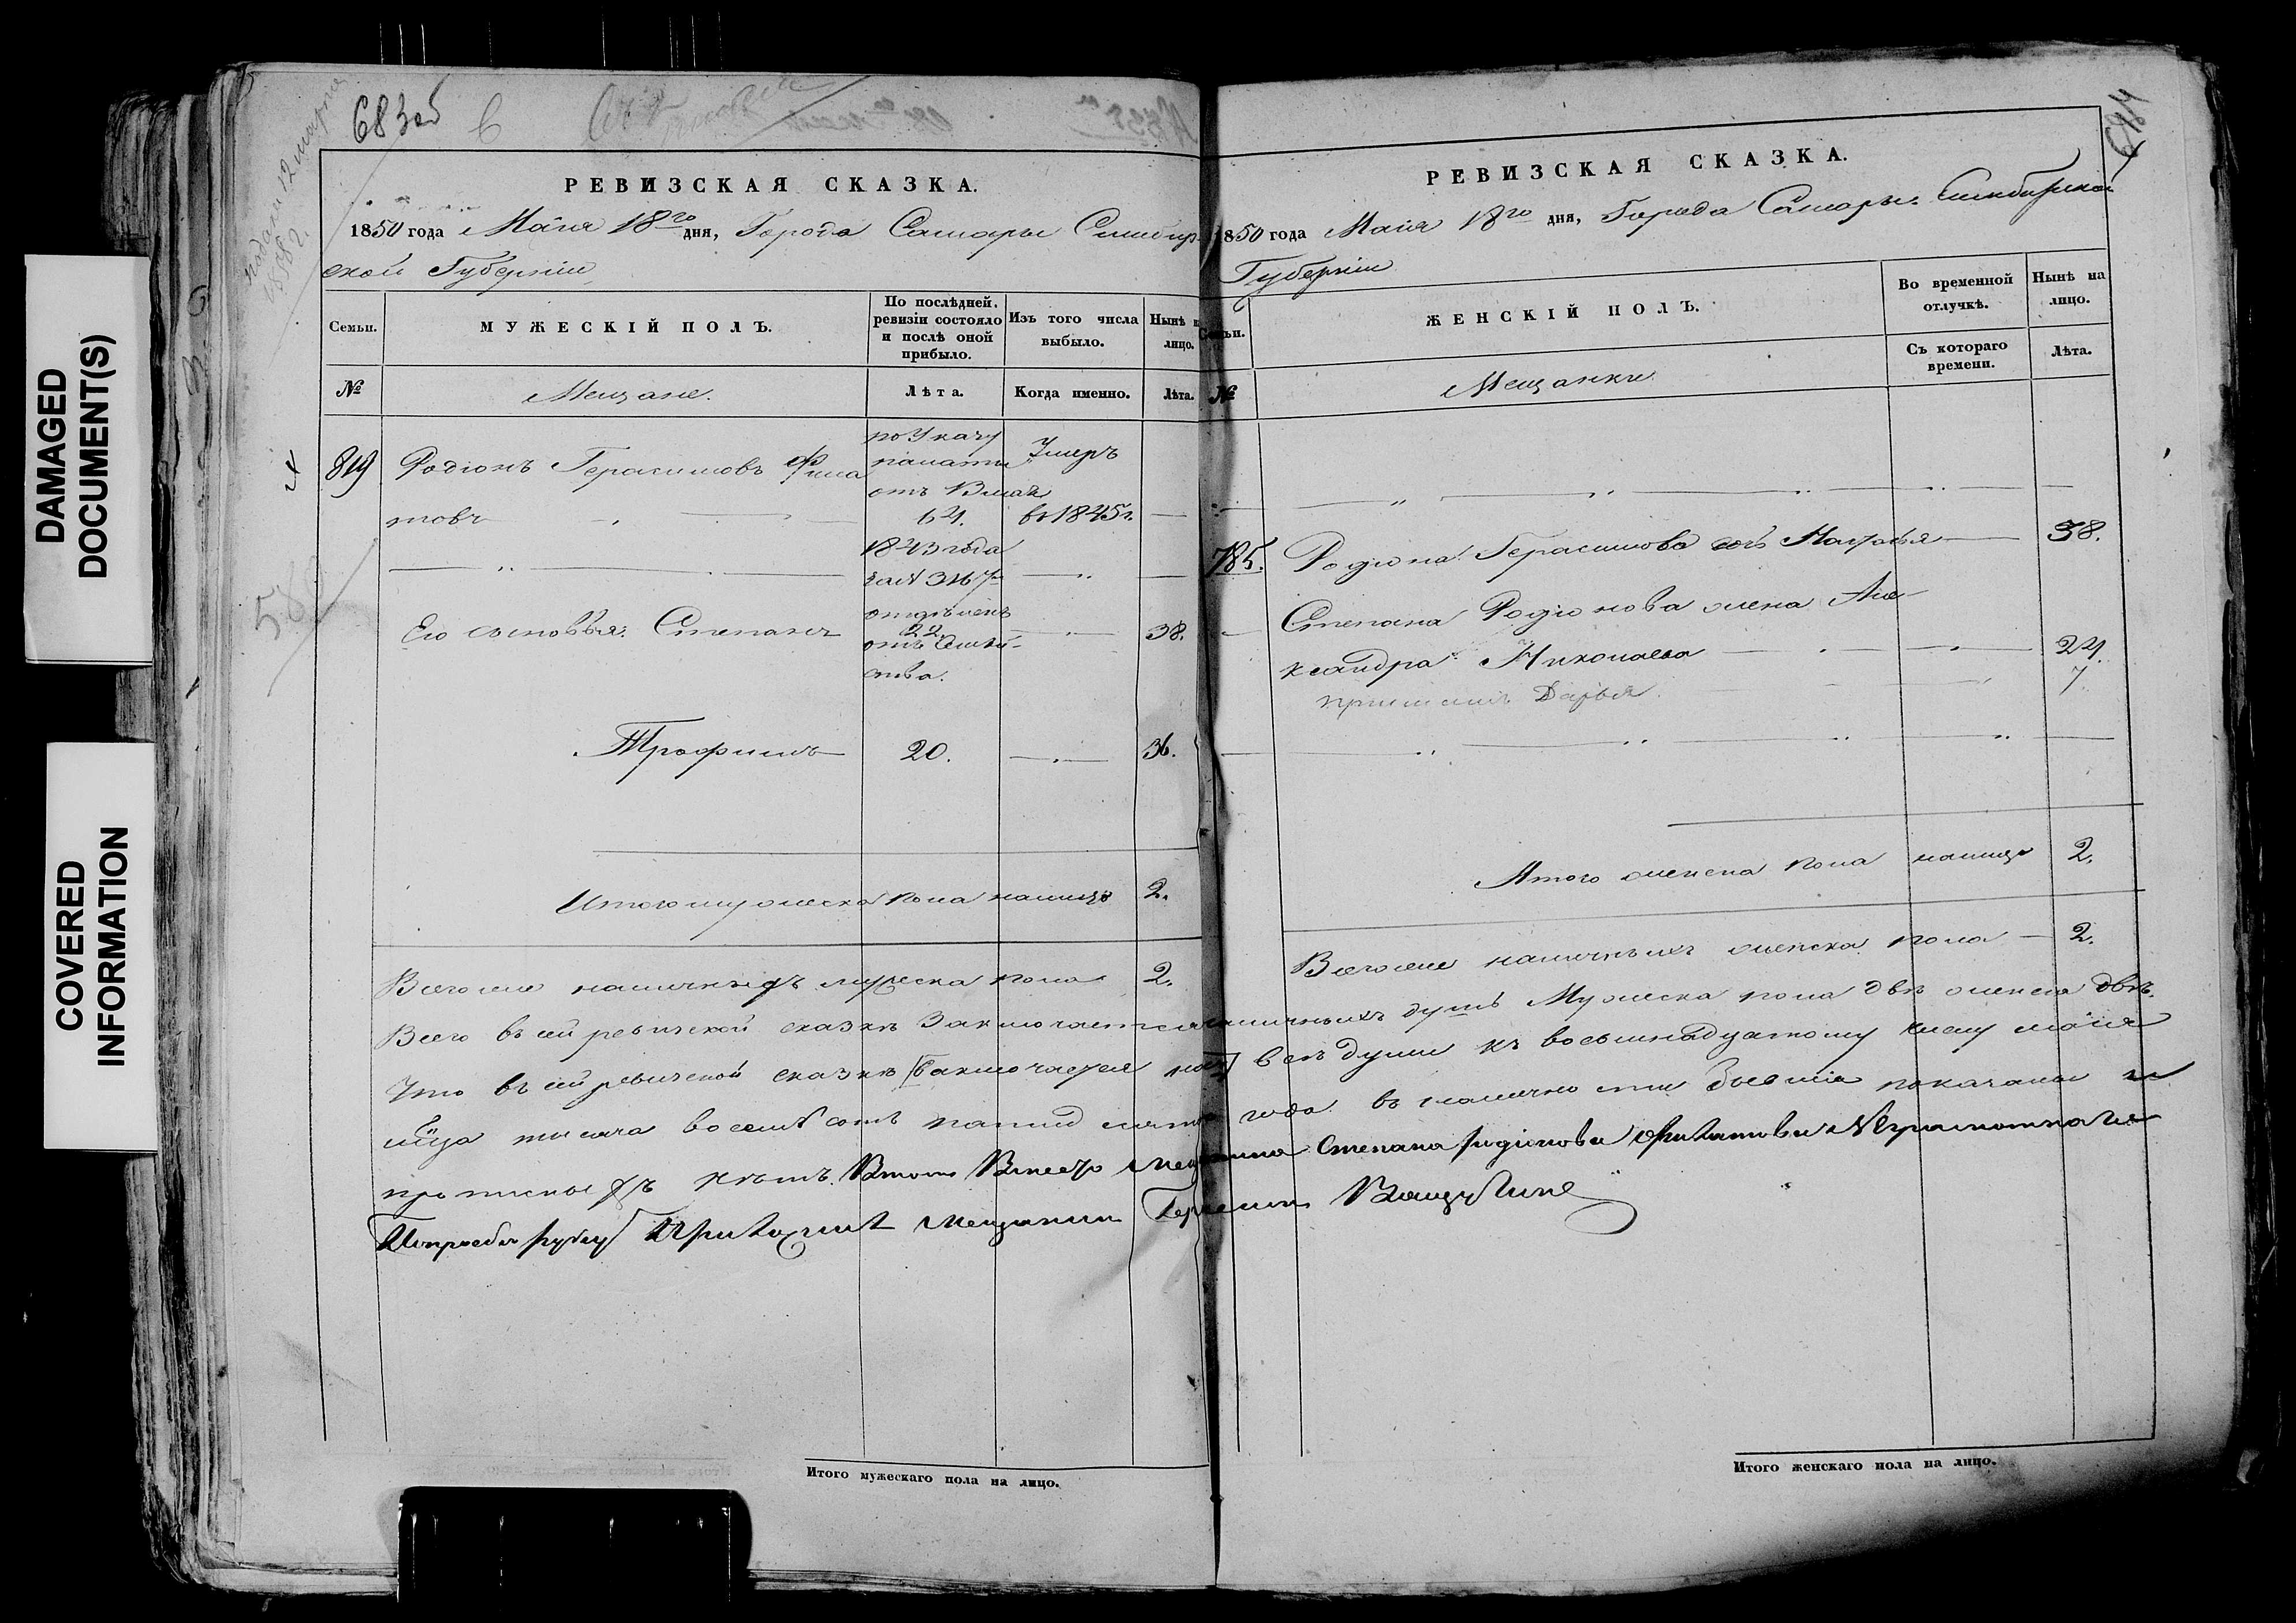 DAMAGED
DOCUMENT(S)
COVERED
INFORMATION
683об
6
подана 12 марта
1858 г.
РЕВИЗСКАЯ СКАЗКА.
1850 года Маія 18го дня, Города Самары Симбир-
ской Губерніи
Семьи.
МУЖЕСКІЙ ПОЛЪ.
По послѣдней ревизіи состояло и послѣ оной прибыло.
Изъ того числа выбыло.
Нынѣ н лицо.
№
Мещане.
Лѣта.
Когда именно.
Лѣта.
819
Родіонъ Герасимовъ Фила
товъ
по Указу
палаты
отъ
64.
1843 года
за № 3167
отдѣленъ
22.
отъ Семей-
ства.
Умеръ
въ 1845 г.
58
Его сыновья: Степанъ
38.
Трофимъ 20. 36.
Итого мужеска пола налицо 2.
Всего же наличныхъ мужеска пола 2.
684
РЕВИЗСКАЯ СКАЗКА.
1850 года Маія 18го дня, Города Самары Симбирской
Губерніи
Семьи.
ЖЕНСКІЙ ПОЛЪ.
Во временной отлучкѣ.
Нынѣ на лицо.
Съ котораго времени.
Лѣта.
№
Мещанки
785. Родіона Герасимова дочь 38.
Степана Родіонова жена Але-
ксандра Николаева 24.
Дарья 7
Итого женска пола налицо 2.
Всего же наличныхъ женска пола 2.
Всего въ сей ревизской сказкѣ Заключается наличныхъ душъ Мужеска пола двѣ женска двѣ.
Что въ сей ревизской сказкѣ всѣ души къ восьмнадцатому числу маія
мца тысяча восемъ сотъ пятидесятаго года въ наличности показаны и
прописныхъ нѣтъ. Втомъ Вместо мещанина Степана родіонова Филатова Неграмотнаго
Попрозбе руку Приложилъ мещанинъ
Итого мужескаго пола на лицо.
Итого женскаго пола на лицо.